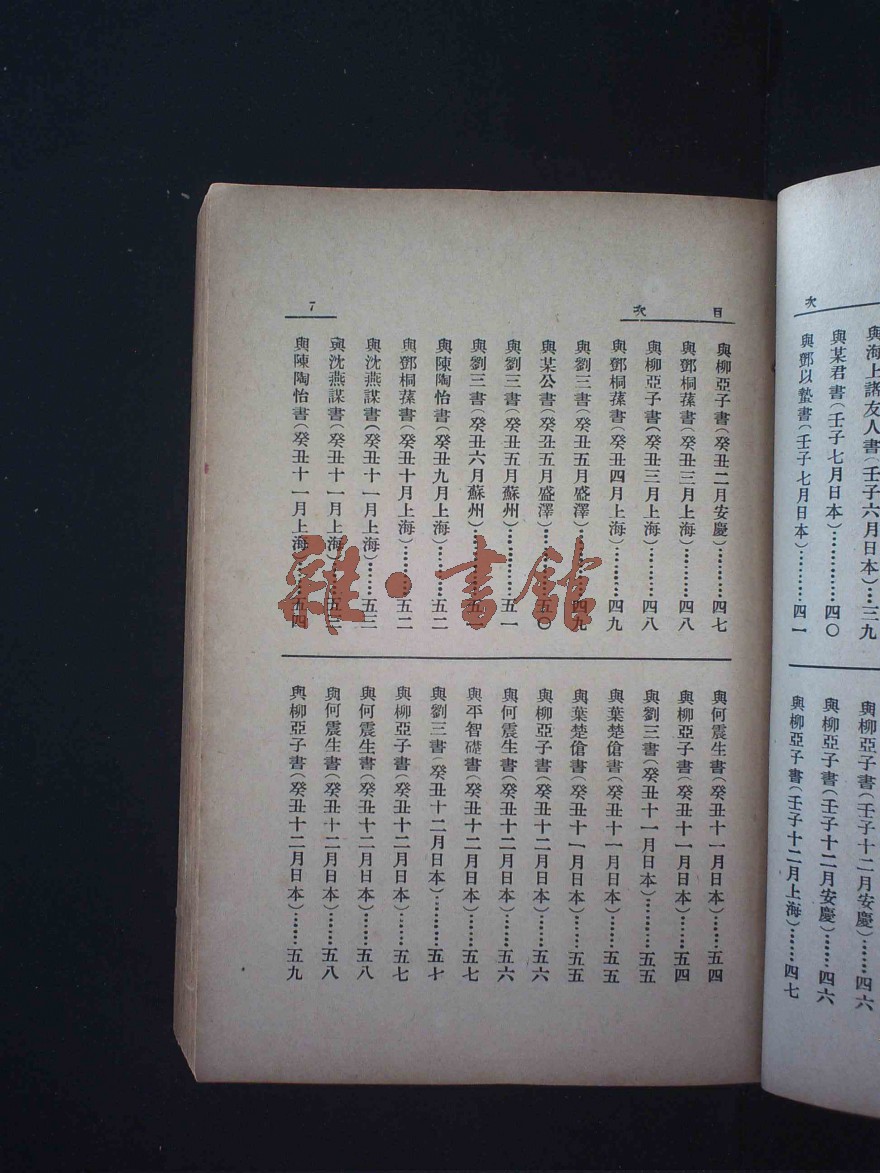 次
與海上諸友人書（壬子六月日本）…三九
與某君書（壬子七月日本）…………四〇
與鄧以蟄書（壬子七月日本）………四一
與柳亞子書（壬子十二月安慶）……四六
與柳亞子書（壬子十二月安慶）……四六
與柳亞子書（壬子十二月上海）……四七
目次
7
與柳亞子書（癸丑二月安慶）………四七
與鄧桐蓀書（癸丑三月上海）………四八
與柳亞子書（癸丑三月上海）………四八
與鄧桐蓀書（癸丑四月上海）………四九
與劉三書（癸丑五月盛澤）…………四九
與某公書（癸丑五月盛澤）…………五〇
與劉三書（癸丑五月蘇州）…………五一
與劉三書（癸丑六月蘇州）…………五一
與陳陶怡書（癸丑九月上海）………五二
與鄧桐蓀書（癸丑十月上海）………五二
與沈燕謀書（癸丑十一月上海）……五三
與沈燕謀書（癸丑十一月上海）……五三
與陳陶怡書（癸丑十一月上海）……五四
與何震生書（癸丑十一月日本）……五四
與柳亞子書（癸丑十一月日本）……五四
與劉三書（癸丑十一月日本）………五五
與葉楚傖書（癸丑十一月日本）……五五
與葉楚傖書（癸丑十一月日本）……五五
與柳亞子書（癸丑十二月日本）……五六
與何震生書（癸丑十二月日本）……五六
與平智礎書（癸丑十二月日本）……五七
與劉三書（癸丑十二月日本）………五七
與柳亞子書（癸丑十二月日本）……五七
與何震生書（癸丑十二月日本）……五八
與何震生書（癸丑十二月日本）……五八
與柳亞子書（癸丑十二月日本）……五九
雜·書館